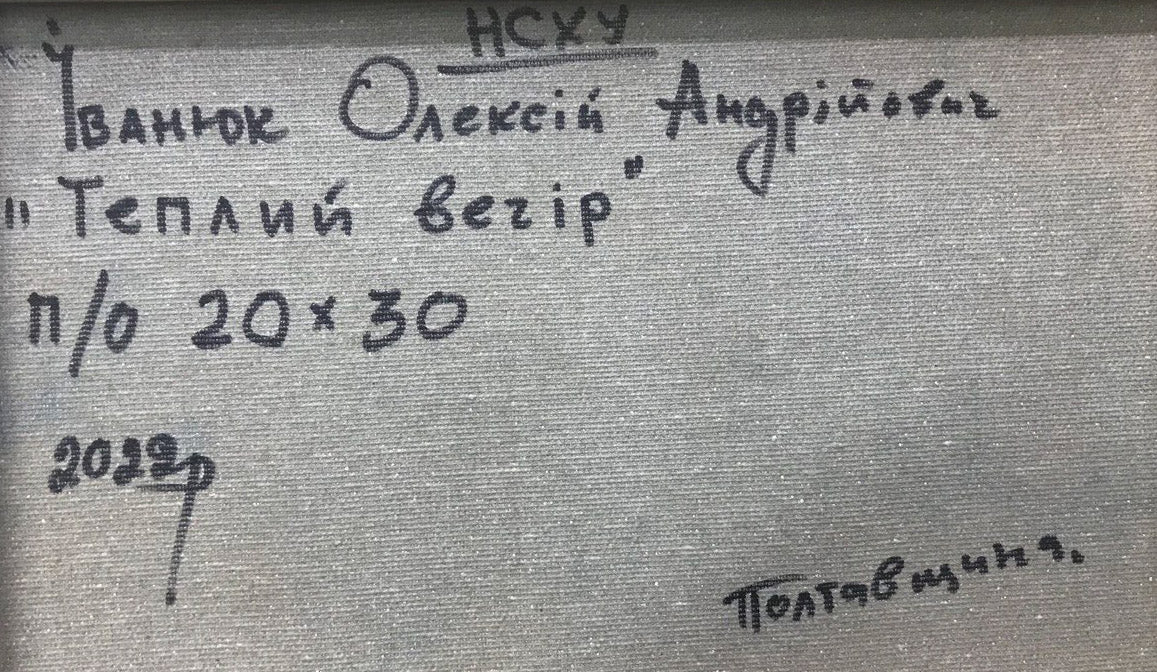 НСХУ
Іванюк Олексій Андрійович
"Теплий вечір"
п/о 20×30
2022р
Полтавщина.